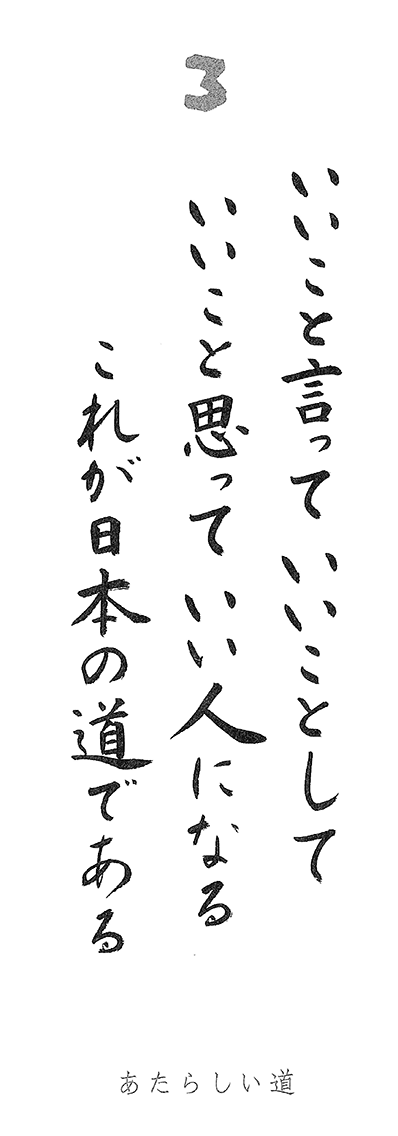 3
いいこと言って いいことして
いいこと思って いい人になる
これが日本の道である
あたらしい道